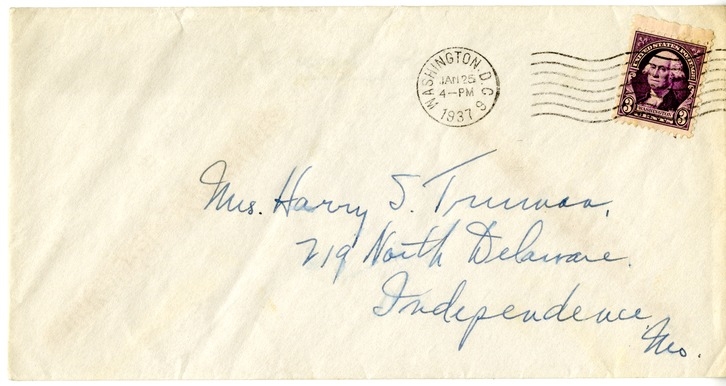 WASHINGTON, D.C. 9
JAN 25
4-PM
1937
UNITED STATES POSTAGE
3 WASHINGTON 3
Mrs. Harry S. Truman,
219 North Delaware.
Independence
Mo.